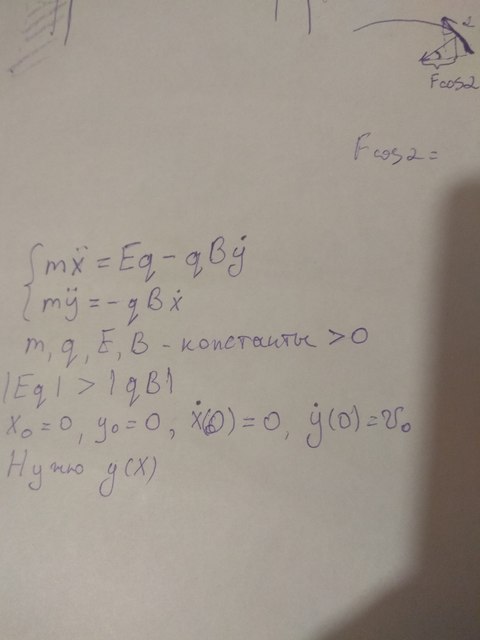 2
Fcos2
Fcos2=
mẍ = Eq - qBẏ
mÿ = - qBẋ
m, q, E, B - константы > 0
|Eq| > |qB|
x₀ = 0, y₀ = 0, ẋ(0) = 0, ẏ(0) = v₀
Нужно y(x)